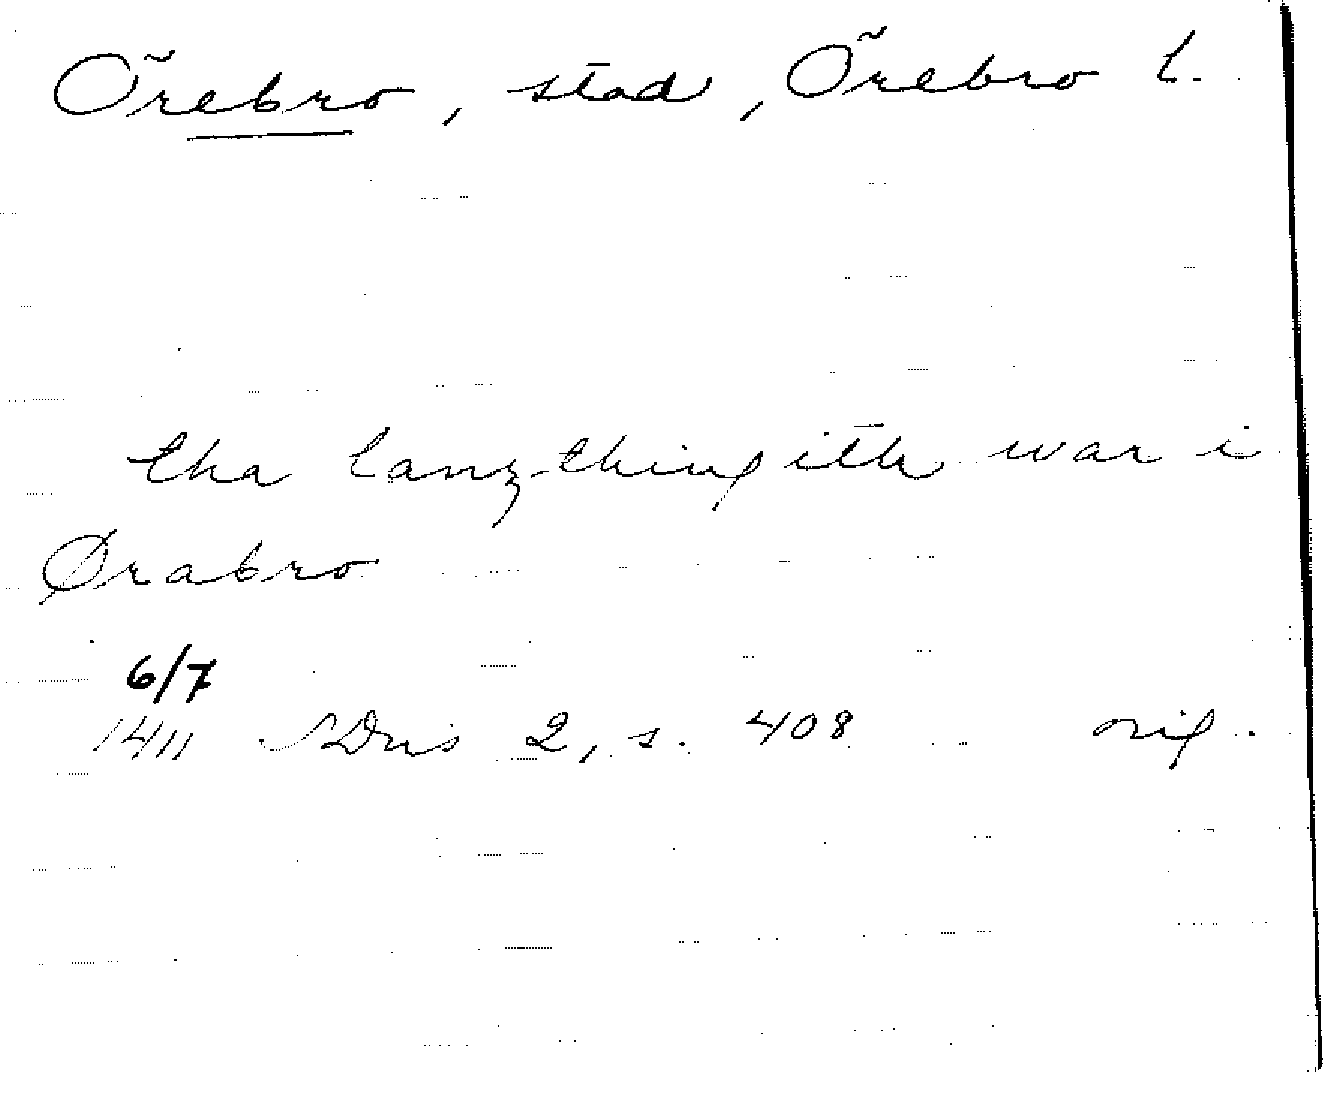 Örebro, stad, Örebro l.
tha lanz thingith war i
Ørabro
6/7
1411 SDns 2, s. 408 orig.